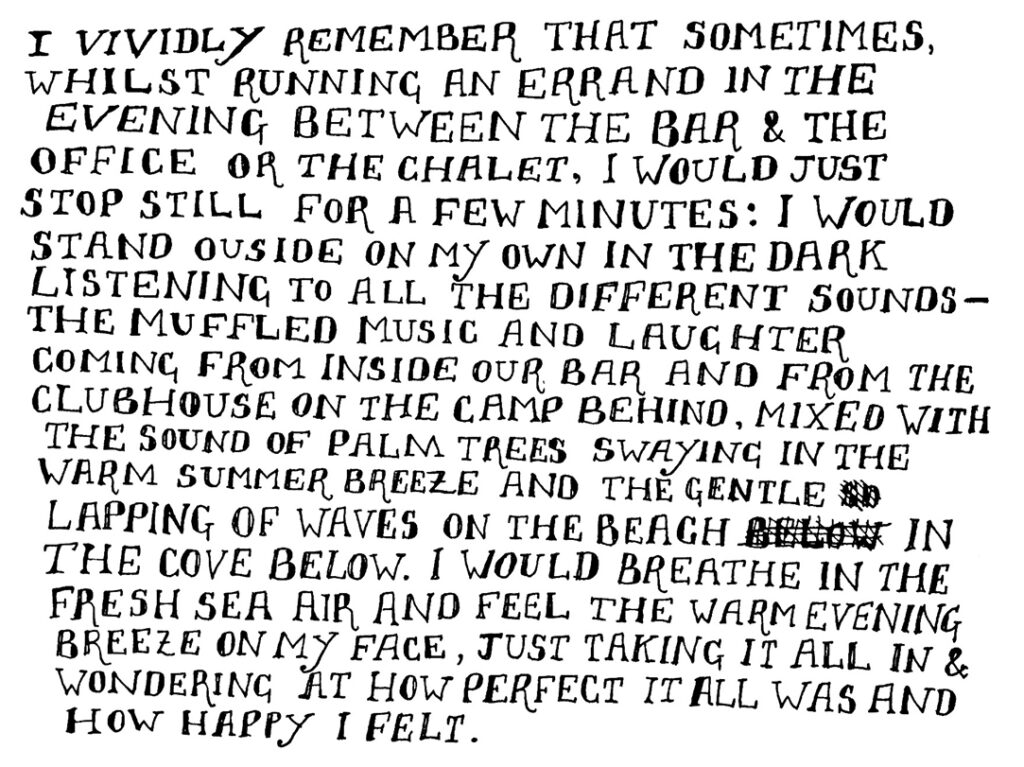 I VIVIDLY REMEMBER THAT SOMETIMES,
WHILST RUNNING AN ERRAND IN THE
EVENING BETWEEN THE BAR & THE
OFFICE OR THE CHALET, I WOULD JUST
STOP STILL FOR A FEW MINUTES: I WOULD
STAND OUSIDE ON MY OWN IN THE DARK
LISTENING TO ALL THE DIFFERENT SOUNDS–
THE MUFFLED MUSIC AND LAUGHTER
COMING FROM INSIDE OUR BAR AND FROM THE
CLUBHOUSE ON THE CAMP BEHIND, MIXED WITH
THE SOUND OF PALM TREES SWAYING IN THE
WARM SUMMER BREEZE AND THE GENTLE
LAPPING OF WAVES ON THE BEACH BELOW IN
THE COVE BELOW. I WOULD BREATHE IN THE
FRESH SEA AIR AND FEEL THE WARM EVENING
BREEZE ON MY FACE, JUST TAKING IT ALL IN &
WONDERING AT HOW PERFECT IT ALL WAS AND
HOW HAPPY I FELT.